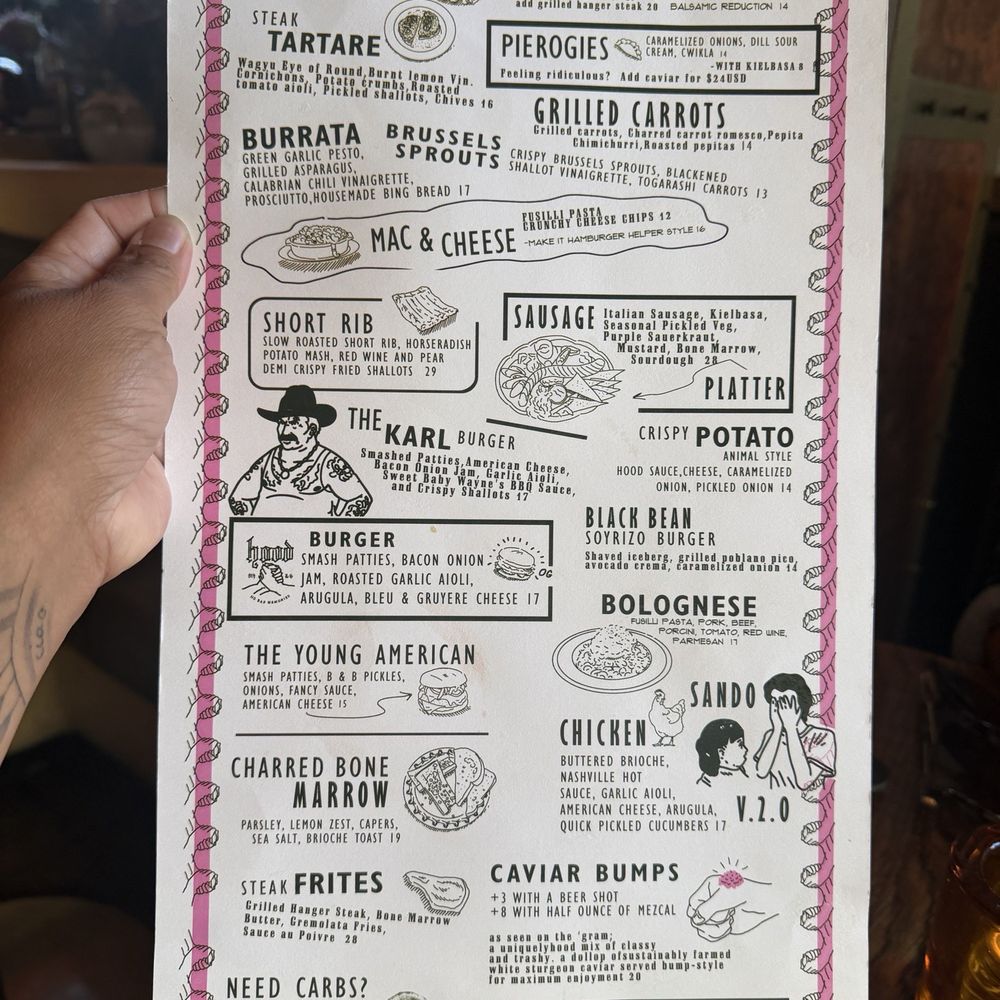 add grilled hanger steak 20 BALSAMIC REDUCTION 14
STEAK
TARTARE
Wagyu Eye of Round,Burnt lemon Vin.
Cornichons, Potato crumbs,Roasted
tomato aioli, Pickled shallots, Chives 16
PIEROGIES
CARAMELIZED ONIONS, DILL SOUR
CREAM, CWIKLA 14
-WITH KIELBASA 8
Feeling ridiculous? Add caviar for $24USD
GRILLED CARROTS
Grilled carrots, Charred carrot romesco,Pepita
Chimichurri,Roasted pepitas 14
BURRATA
GREEN GARLIC PESTO,
GRILLED ASPARAGUS,
CALABRIAN CHILI VINAIGRETTE,
PROSCIUTTO,HOUSEMADE BING BREAD 17
BRUSSELS
SPROUTS
CRISPY BRUSSELS SPROUTS, BLACKENED
SHALLOT VINAIGRETTE, TOGARASHI CARROTS 13
MAC & CHEESE
FUSILLI PASTA
CRUNCHY CHEESE CHIPS 12
-MAKE IT HAMBURGER HELPER STYLE 16
SHORT RIB
SLOW ROASTED SHORT RIB, HORSERADISH
POTATO MASH, RED WINE AND PEAR
DEMI CRISPY FRIED SHALLOTS 29
SAUSAGE
Italian Sausage, Kielbasa,
Seasonal Pickled Veg,
Purple Sauerkraut,
Mustard, Bone Marrow,
Sourdough 28
PLATTER
THE
KARL BURGER
Smashed Patties,American Cheese,
Bacon Onion Jam, Garlic Aioli,
Sweet Baby Wayne's BBQ Sauce,
and Crispy Shallots 17
CRISPY POTATO
ANIMAL STYLE
HOOD SAUCE,CHEESE, CARAMELIZED
ONION, PICKLED ONION 14
hood
BURGER
SMASH PATTIES, BACON ONION
JAM, ROASTED GARLIC AIOLI,
ARUGULA, BLEU & GRUYERE CHEESE 17
OG
BLACK BEAN
SOYRIZO BURGER
Shaved iceberg, grilled poblano pico,
avocado crema, caramelized onion 14
BOLOGNESE
FUSILLI PASTA, PORK, BEEF,
PORCINI, TOMATO, RED WINE,
PARMESAN 17
THE YOUNG AMERICAN
SMASH PATTIES, B & B PICKLES,
ONIONS, FANCY SAUCE,
AMERICAN CHEESE 15
SANDO
CHICKEN
BUTTERED BRIOCHE,
NASHVILLE HOT
SAUCE, GARLIC AIOLI,
AMERICAN CHEESE, ARUGULA,
QUICK PICKLED CUCUMBERS 17
V.2.0
CHARRED BONE
MARROW
PARSLEY, LEMON ZEST, CAPERS,
SEA SALT, BRIOCHE TOAST 19
STEAK FRITES
Grilled Hanger Steak, Bone Marrow
Butter, Gremolata Fries,
Sauce au Poivre 28
CAVIAR BUMPS
+3 WITH A BEER SHOT
+8 WITH HALF OUNCE OF MEZCAL
as seen on the 'gram;
a uniquelyhood mix of classy
and trashy. a dollop ofsustainably farmed
white sturgeon caviar served bump-style
for maximum enjoyment 20
NEED CARBS?